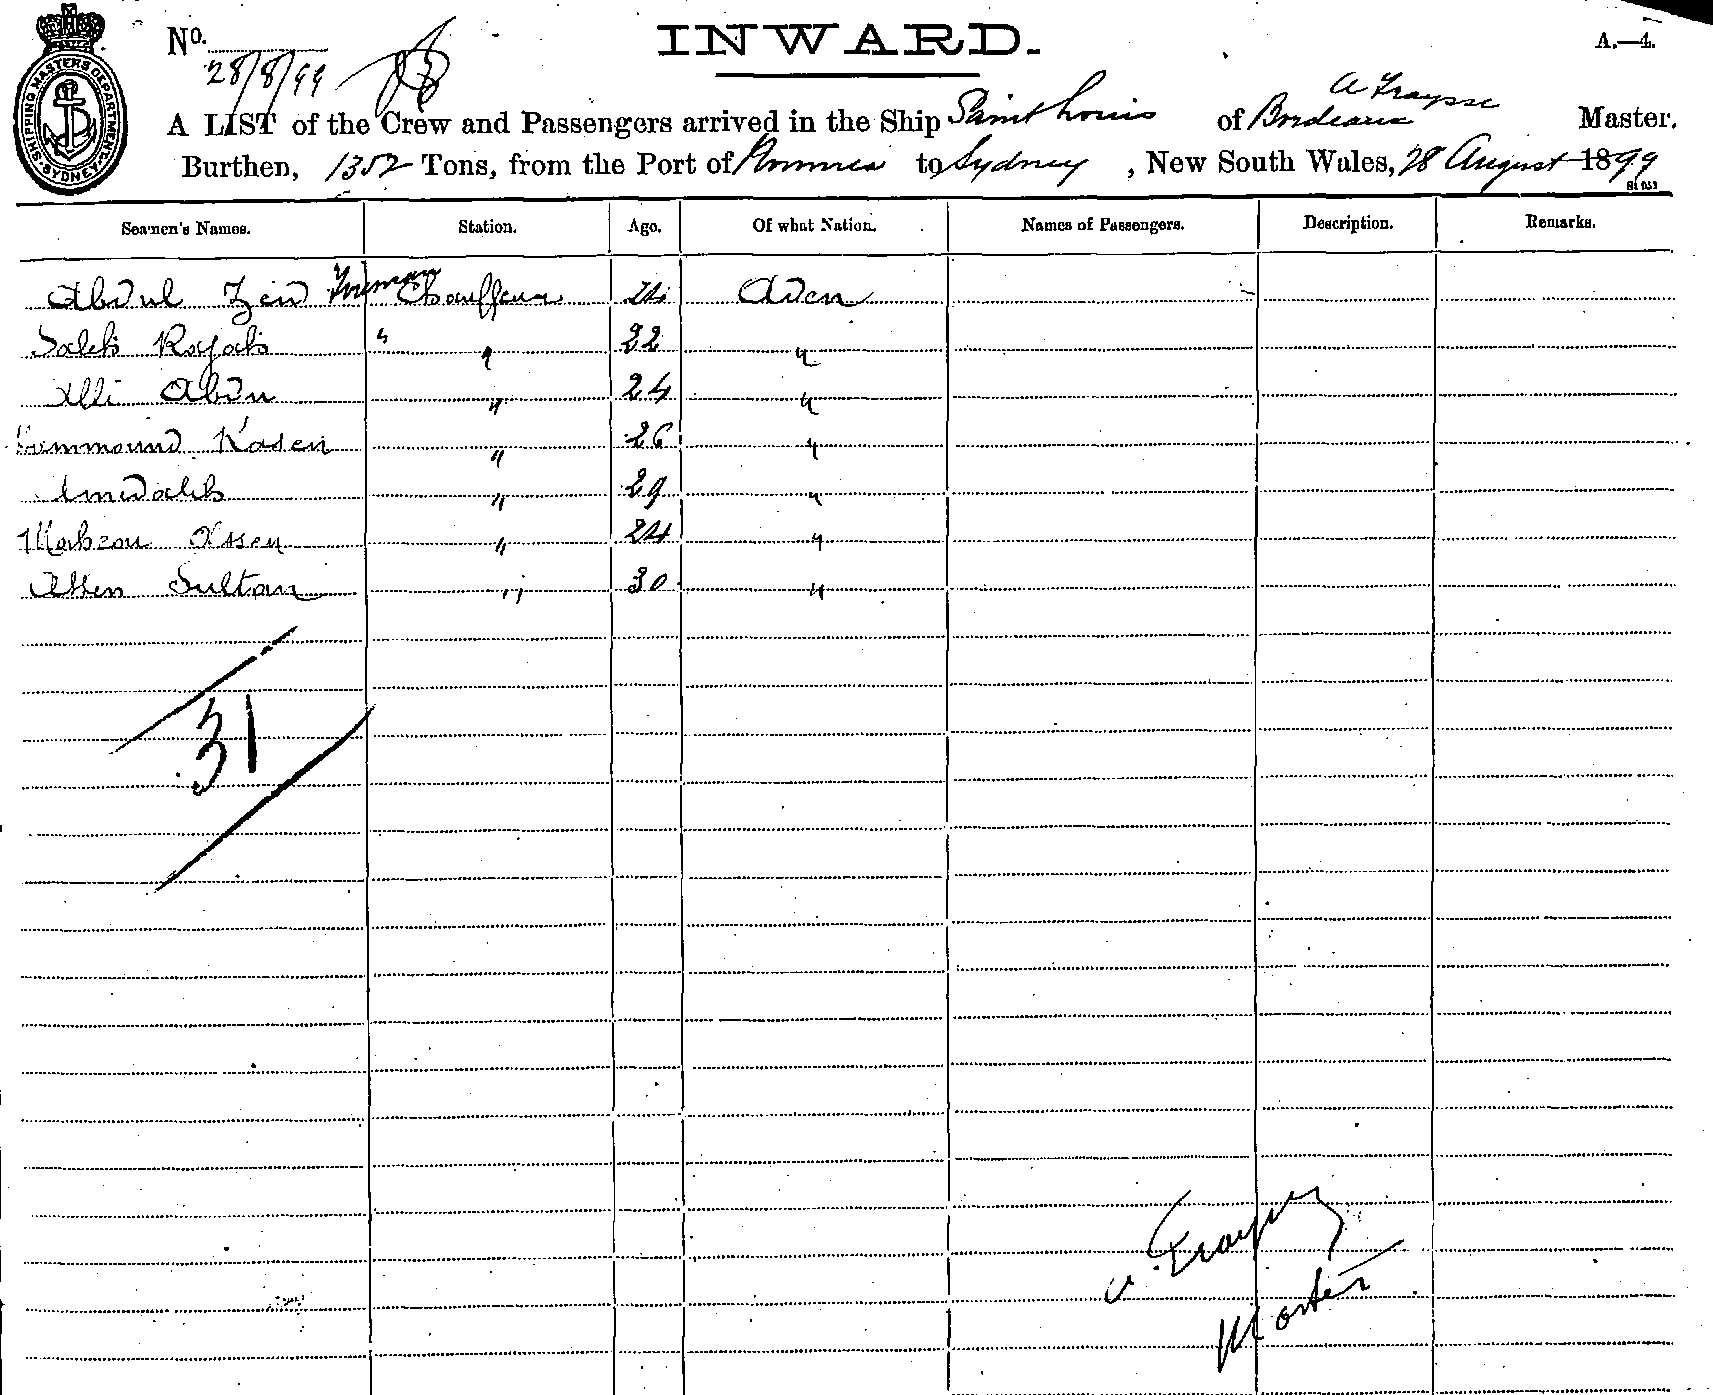 No.
28/8/99
INWARD.
A.—4.
SHIPPING MASTERS DEPARTMENT. SYDNEY.
A Fraysse
A LIST of the Crew and Passengers arrived in the Ship Saint Louis of Bordeaux Master.
Burthen, 1352 Tons, from the Port of to Sydney, New South Wales, 28 August 1899
Seamen's Names. Station. Age. Of what Nation. Names of Passengers. Description. Remarks.
Abdul Zeid Fireman Chauffeur 24 Aden
Saleh " " 22 "
Alli Abdu " 24 "
Kasen " 26 "
" 29 "
Ossen " 24 "
Sultan " 30 "
31
A. Fraysse
Master